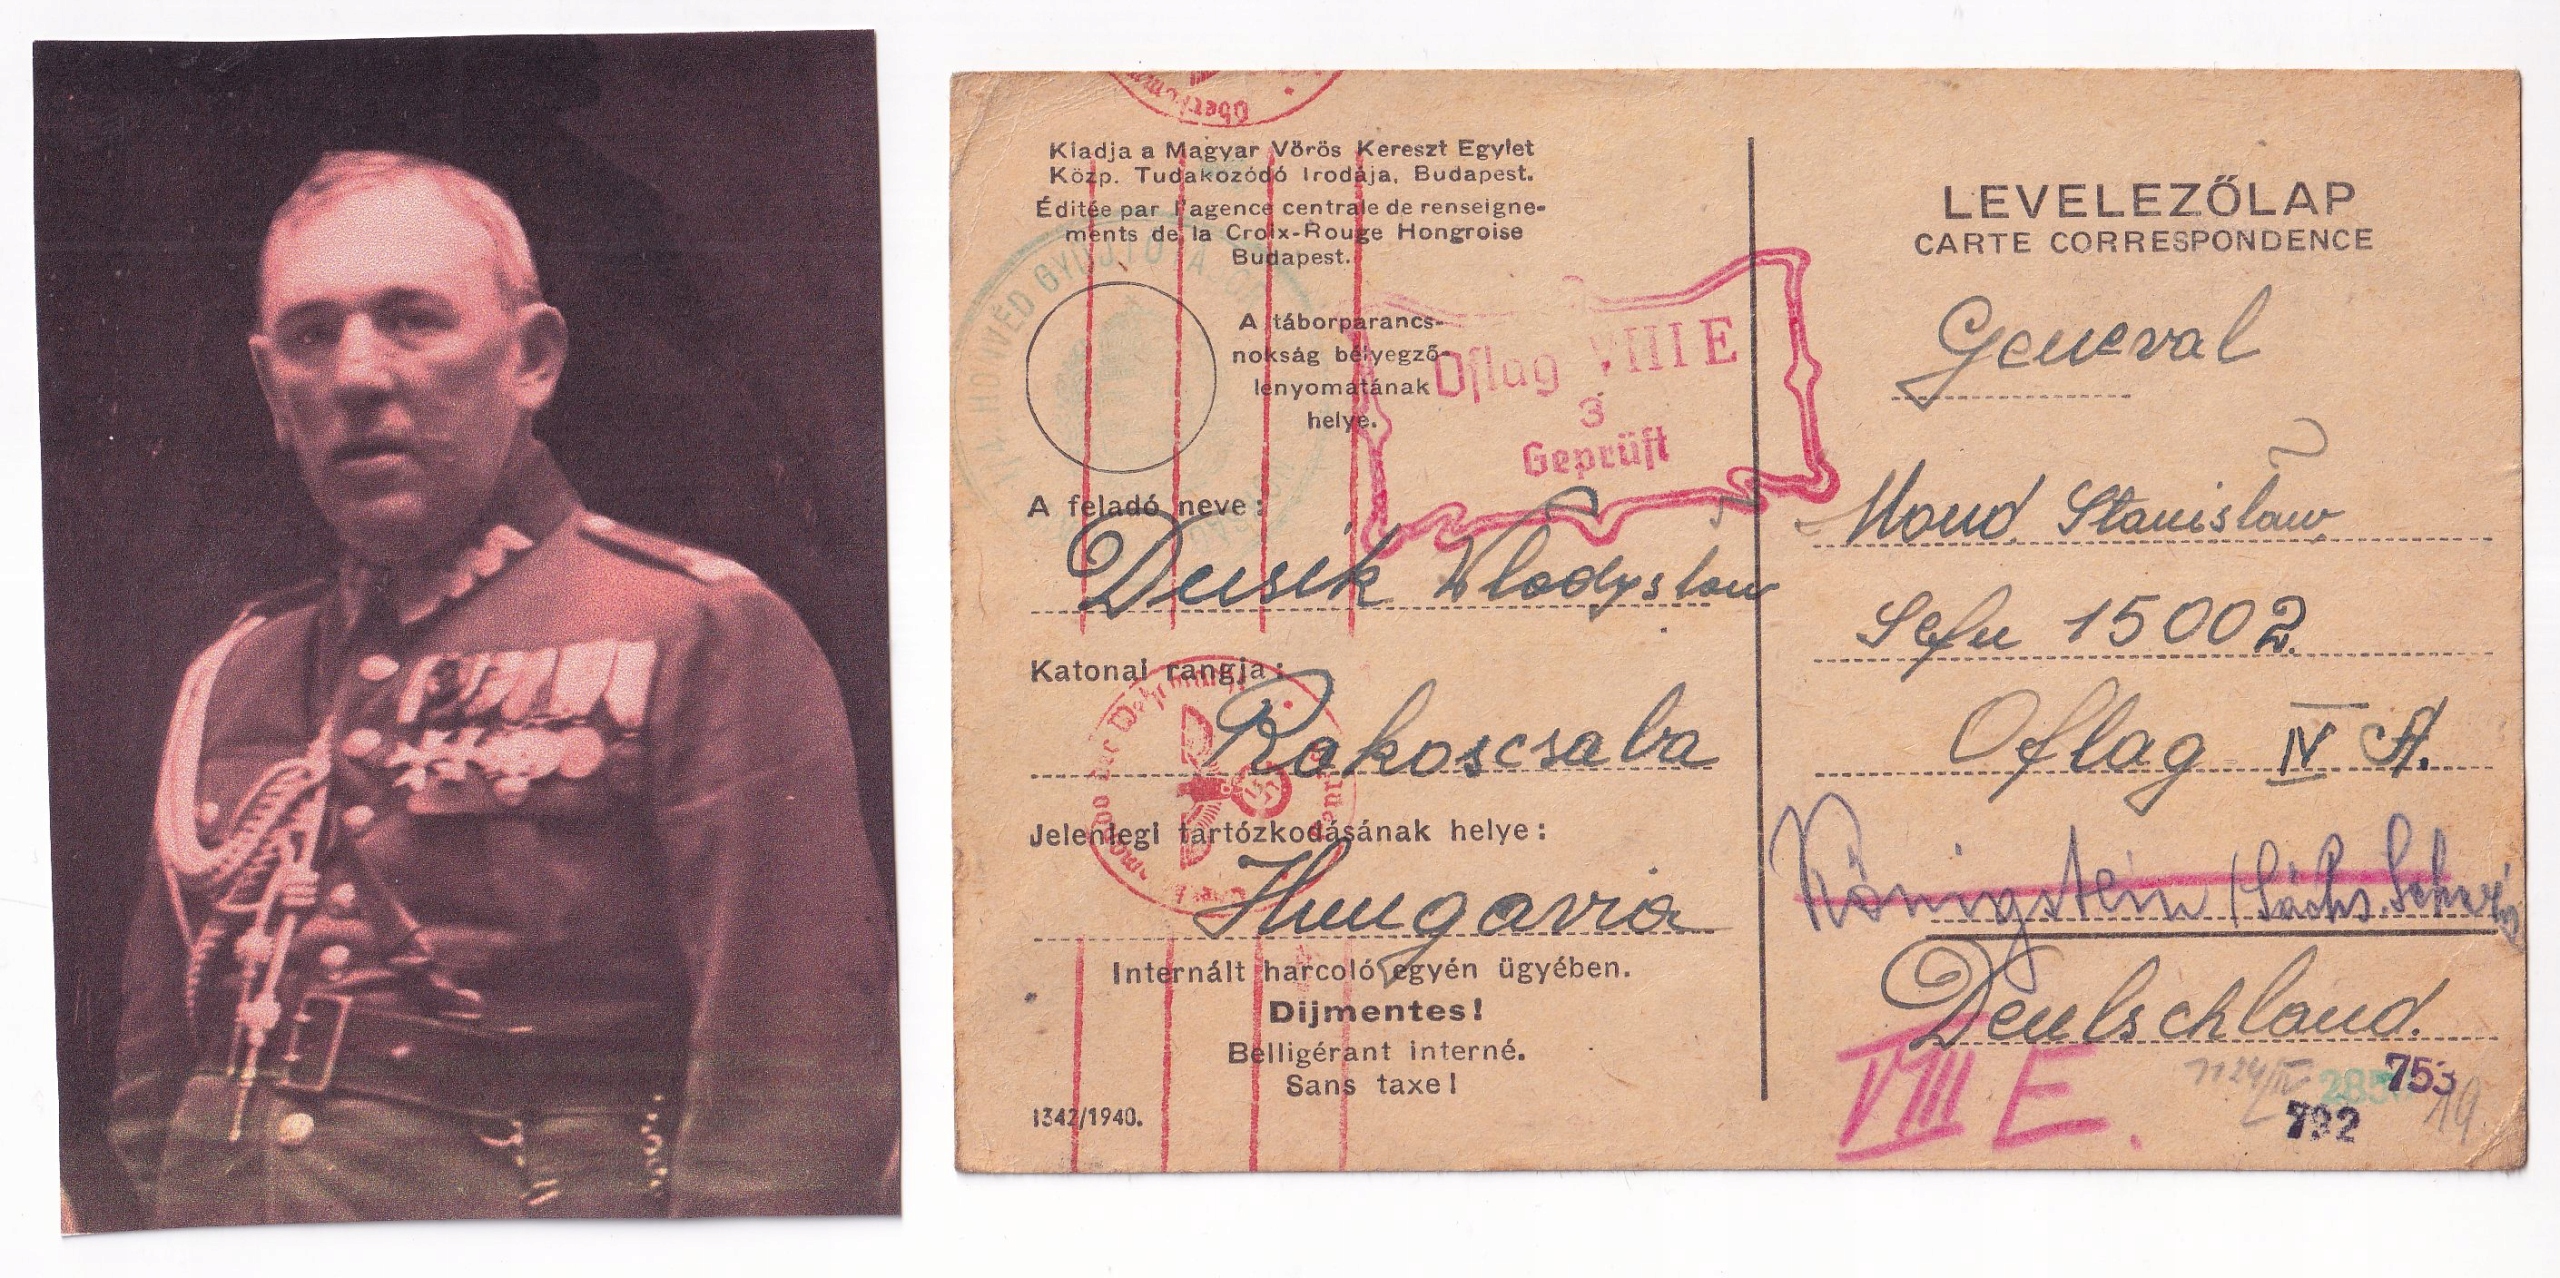 Kiadja a Magyar Vörös Kereszt Egylet
Közp. Tudakozódó Irodája, Budapest.
Éditée par l'agence centrale de renseigne-
ments de la Croix-Rouge Hongroise
Budapest.
A táborparancs-
nokság bélyegző-
lenyomatának
helye.
Oflag VIII E
3
Geprüft
A feladó neve:
Dusik Wladyslaw
Katonai rangja:
Rakoscsaba
Jelenlegi tartózkodásának helye:
Hungaria
Internált harcoló egyén ügyében.
Dijmentes!
Belligérant interné.
Sans taxe!
1342/1940.
LEVELEZŐLAP
CARTE CORRESPONDENCE
General
Mond Stanislaw
Gefn 15002.
Oflag IV A.
Königstein (Sächs. Schweiz
Deutschland.
VIII E.
753
792
19